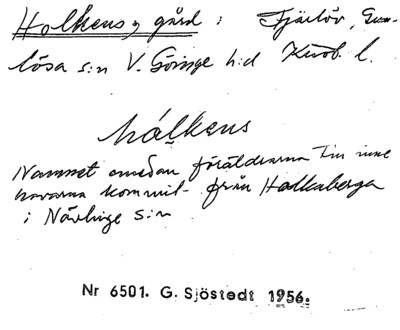 Holkens, gård i Fjärlöv, Gum-
lösa s:n V. Göinge h:d Krist. l.
hålkens
Namnet emedan föräldrarna till inne
havarna kommit från Hålkaberga
i Nävlinge s:n
Nr 6501. G. Sjöstedt 1956.